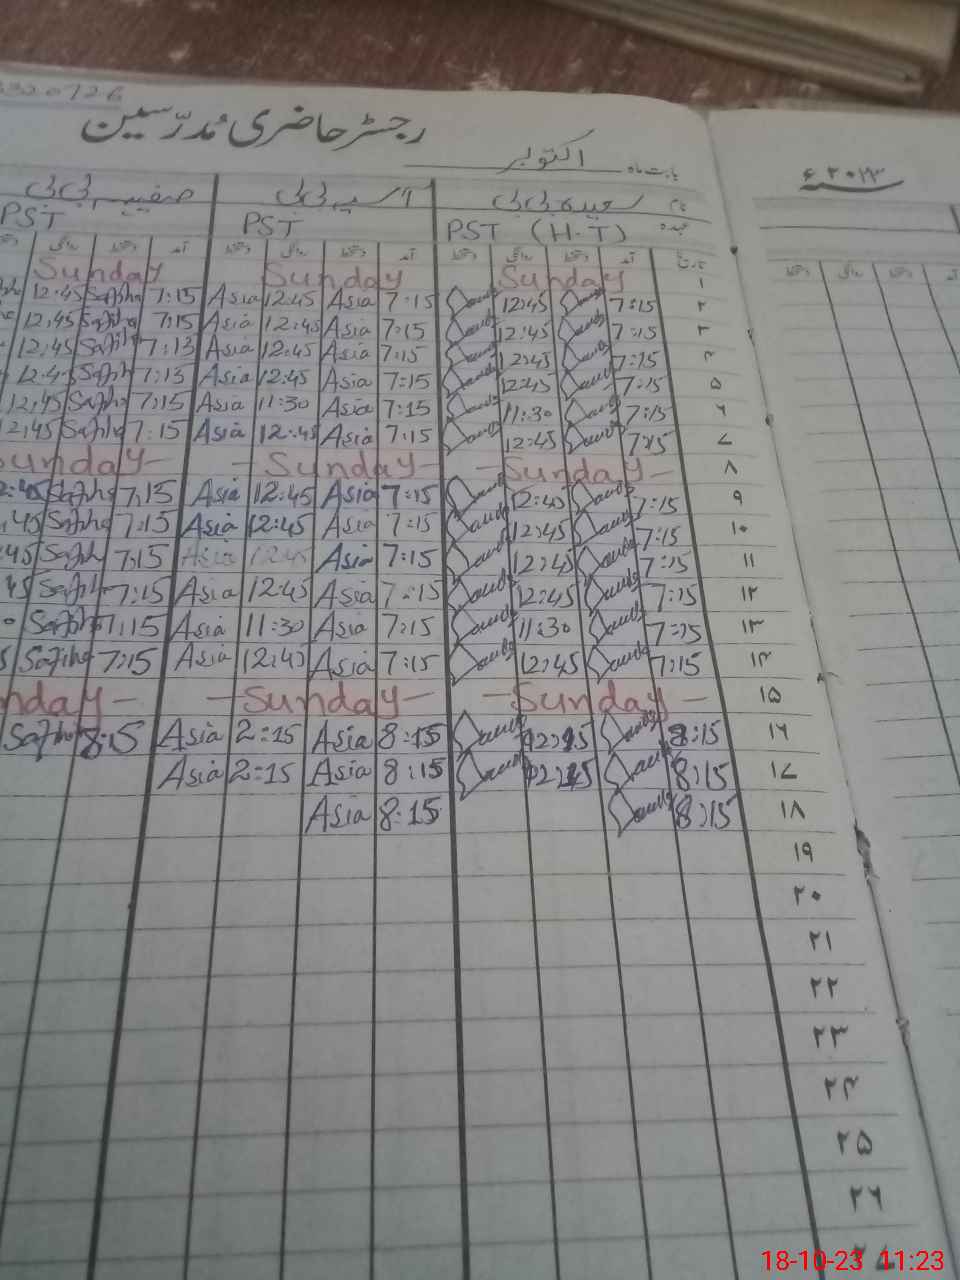 320726
رجسٹر حاضری مُدرّسین
بابت ماہ اکتوبر
۲۰۲۳ء
نام سعیدہ بی بی آسیہ بی بی صفیہ بی بی
عہدہ PST (H-T) PST PST
تاریخ آمد دستخط روانگی دستخط آمد دستخط روانگی دستخط آمد دستخط روانگی
۱ Sunday Sunday Sunday
۲ 7:15 12:45 7:15 Asia 12:45 Asia 7:15 Safiha 12:45
۳ 7:15 12:45 7:15 Asia 12:45 Asia 7:15 Safiha 12:45
۴ 7:15 12:45 7:15 Asia 12:45 Asia 7:15 Safiha 12:45
۵ 7:15 12:45 7:15 Asia 12:45 Asia 7:15 Safiha 12:45
۶ 7:15 11:30 7:15 Asia 11:30 Asia 7:15 Safiha
۷ 7:15 12:45 7:15 Asia 12:45 Asia 7:15 Safiha 12:45
۸ Sunday Sunday Sunday
۹ 7:15 12:45 7:15 Asia 12:45 Asia 7:15 Safiha 12:45
۱۰ 7:15 12:45 7:15 Asia 12:45 Asia 7:15 Safiha 45
۱۱ 7:15 12:45 7:15 Asia 12:45 Asia 7:15 Safiha 45
۱۲ 7:15 12:45 7:15 Asia 12:45 Asia 7:15 Safiha 45
۱۳ 7:15 11:30 7:15 Asia 11:30 Asia 7:15 Safiha
۱۴ 7:15 12:45 7:15 Asia 12:45 Asia 7:15 Safiha
۱۵ Sunday Sunday nday
۱۶ 8:15 8:15 Asia 2:15 Asia 8:15 Safiha
۱۷ 8:15 8:15 Asia 2:15 Asia
۱۸ 8:15 8:15 Asia
۱۹
۲۰
۲۱
۲۲
۲۳
۲۴
۲۵
۲۶
18-10-23 11:23